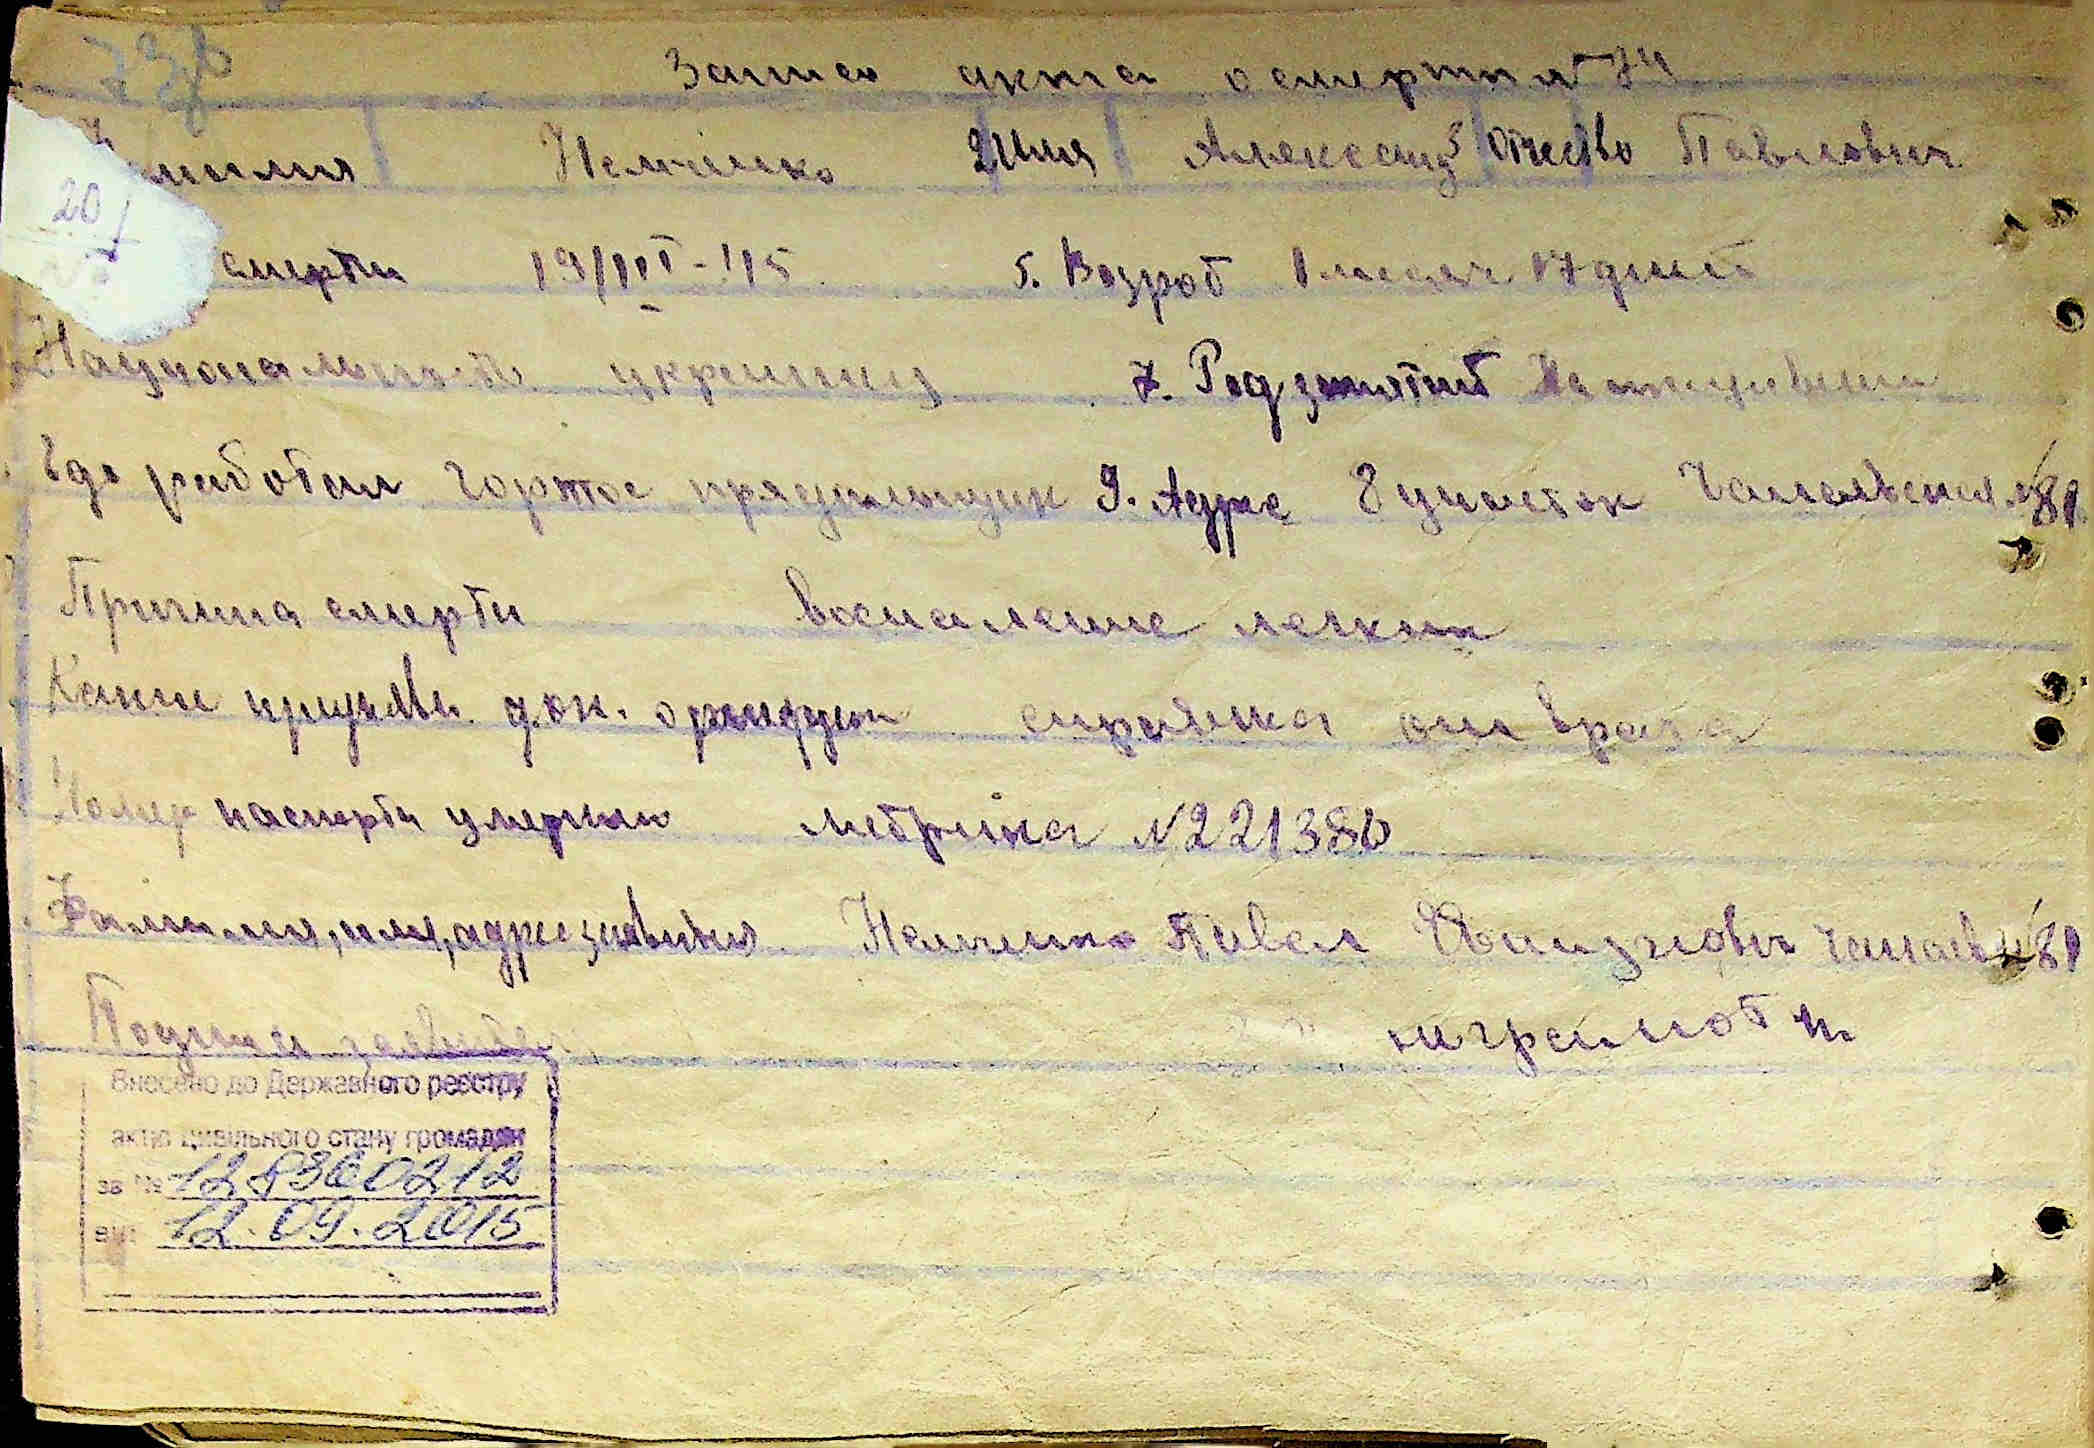 73б
Запись акта о смерти №
Фамилия Немченко 2 Имя Александ 3 Отчество Павлович
20
смерти 19/III-45 5. Возраст 1 месяч 17 дней
Национальность украинец 7. Род занятий На иждивении
Где работал Гортоп 9. Адрес 8 участок Чапаевская № 81
Причина смерти воспаление легких
Какие док. справка от врача
Номер паспорта умерших метрика №221386
Фамилия, имя, адрес заявителя Немченко Павел Чапаев №81
Подпись заявителя неграмотн
Внесено до Державного реєстру
актів цивільного стану громадян
за № 12836 0212
від 12.09.2015